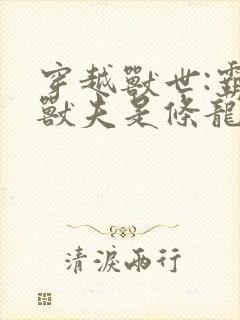 穿越獸世:霸
獸夫是條龍
清淚兩行